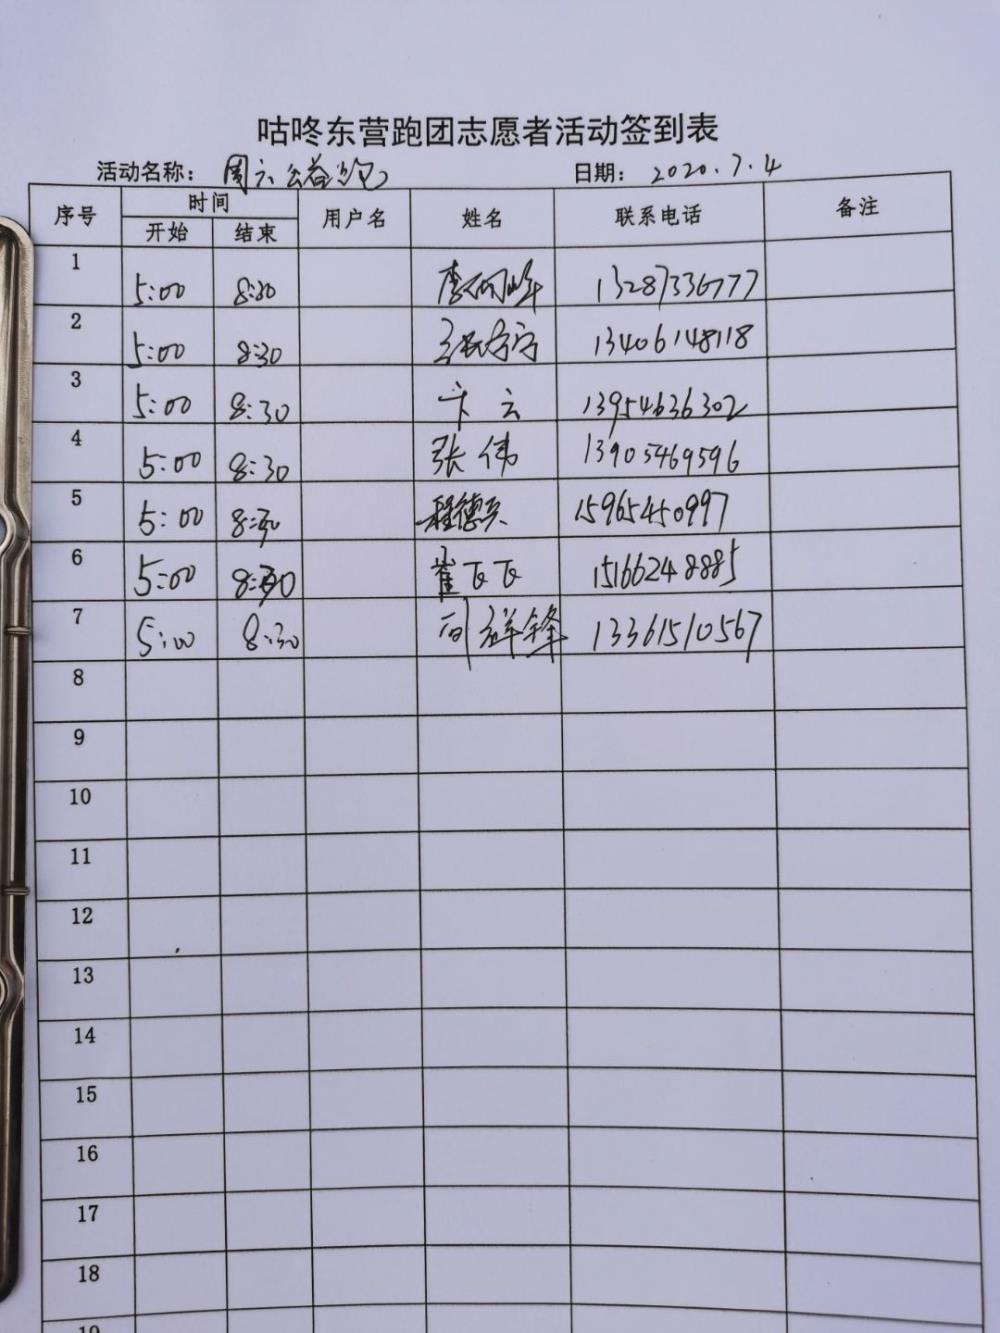 咕咚东营跑团志愿者活动签到表
活动名称： 周六公益跑 日期： 2020.7.4
序号 时间 用户名 姓名 联系电话 备注
开始 结束
1 5:00 8:30 李 峰 13287336777
2 5:00 8:30 13406148118
3 5:00 8:30 卞云 13954636302
4 5:00 8:30 张伟 13905469596
5 5:00 8:30 程德 15965450997
6 5:00 8:30 崔飞飞 15166248885
7 5:00 8:30 祥锋 13361510567
8
9
10
11
12
13
14
15
16
17
18
19